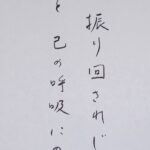 振り回されじ
と己の呼吸に